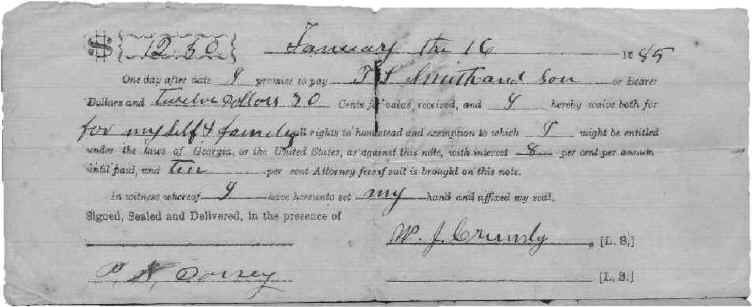 $ 12.50 January the 16 1885
One day after date I promise to pay T S Smith and Son or Bearer
Dollars and twelve Dollars 50 Cents for value received, and I hereby waive both for
for myself & family all rights to homestead and exemption to which I might be entitled
under the laws of Georgia, or the United States, as against this note, with interest 8 per cent per annum
until paid, and ten per cent Attorney fees if suit is brought on this note.
In witness whereof I have hereunto set my hand and affixed my seal.
Signed, Sealed and Delivered, in the presence of
W. J. Grundy, [L. S.]
P. N. Dorsey [L. S.]